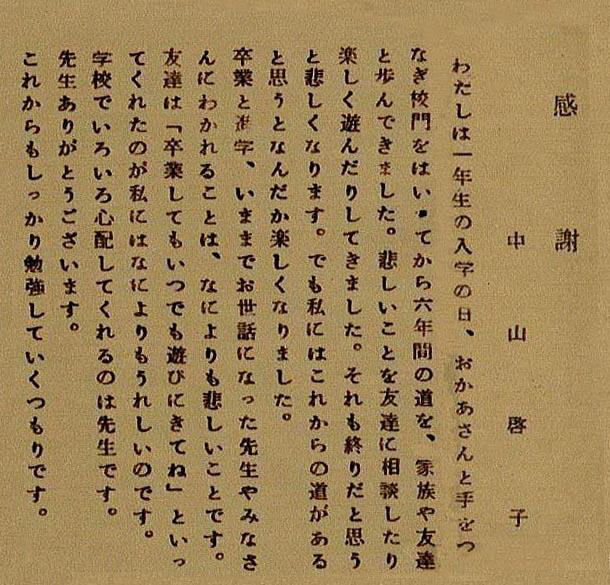 感謝
中山啓子
わたしは一年生の入学の日、おかあさんと手をつ
なぎ校門をはい・てから六年間の道を、家族や友達
と歩んできました。悲しいことを友達に相談したり
楽しく遊んだりしてきました。それも終りだと思う
と悲しくなります。でも私にはこれからの道がある
と思うとなんだか楽しくなりました。
卒業と進学、いままでお世話になった先生やみなさ
んにわかれることは、なによりも悲しいことです。
友達は「卒業してもいつでも遊びにきてね」といっ
てくれたのが私にはなによりもうれしいのです。
学校でいろいろ心配してくれるのは先生です。
先生ありがとうございます。
これからもしっかり勉強していくつもりです。